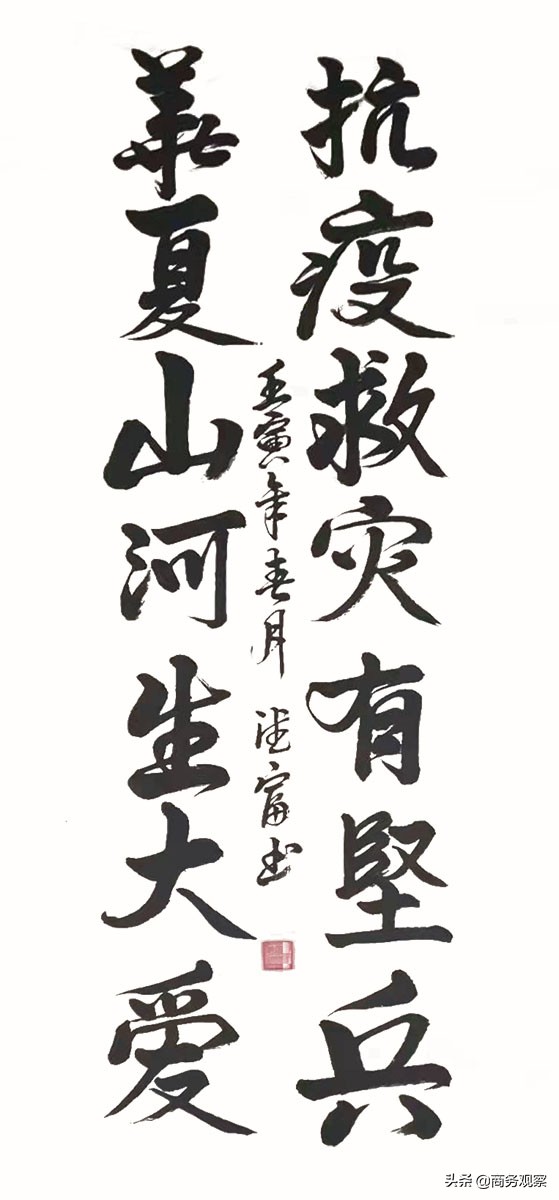 抗疫救灾有堅兵
華夏山河生大爱
壬寅年春月 德富书
头条 @商务观察